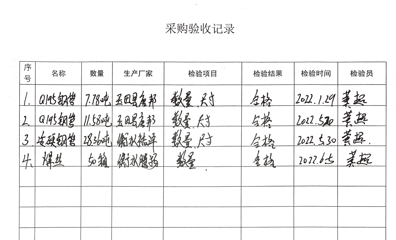 采购验收记录
序号 名称 数量 生产厂家 检验项目 检验结果 检验时间 检验员
1. Q195钢管 7.78吨 数量、尺寸 合格 2022.1.29
2. Q195钢管 11.58吨 数量、尺寸 合格 2022.5.20
3 钢管 28.36吨 衡水 数量、尺寸 合格 2022.5.30
4. 焊丝 50箱 衡水 数量 合格 2022.6.5